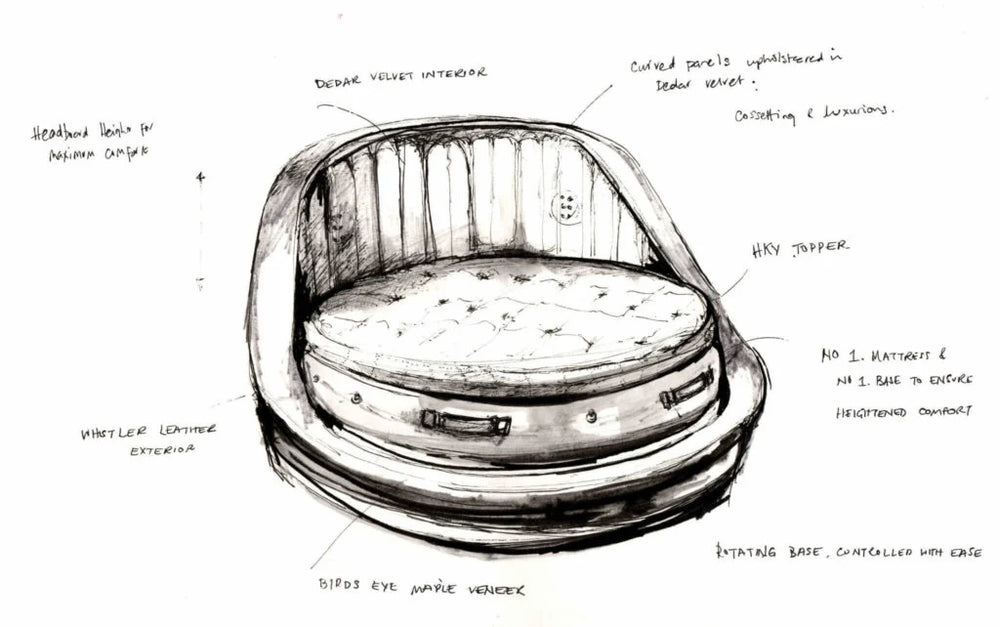 DEDAR VELVET INTERIOR
Curved panels upholstered in
Dedar velvet.
Cossetting & Luxurious.
Headboard Height for
maximum comfort
HKY TOPPER
NO 1. MATTRESS &
NO 1. BASE TO ENSURE
HEIGHTENED COMFORT
WHISTLER LEATHER
EXTERIOR
ROTATING BASE, CONTROLLED WITH EASE
BIRDS EYE MAPLE VENEER